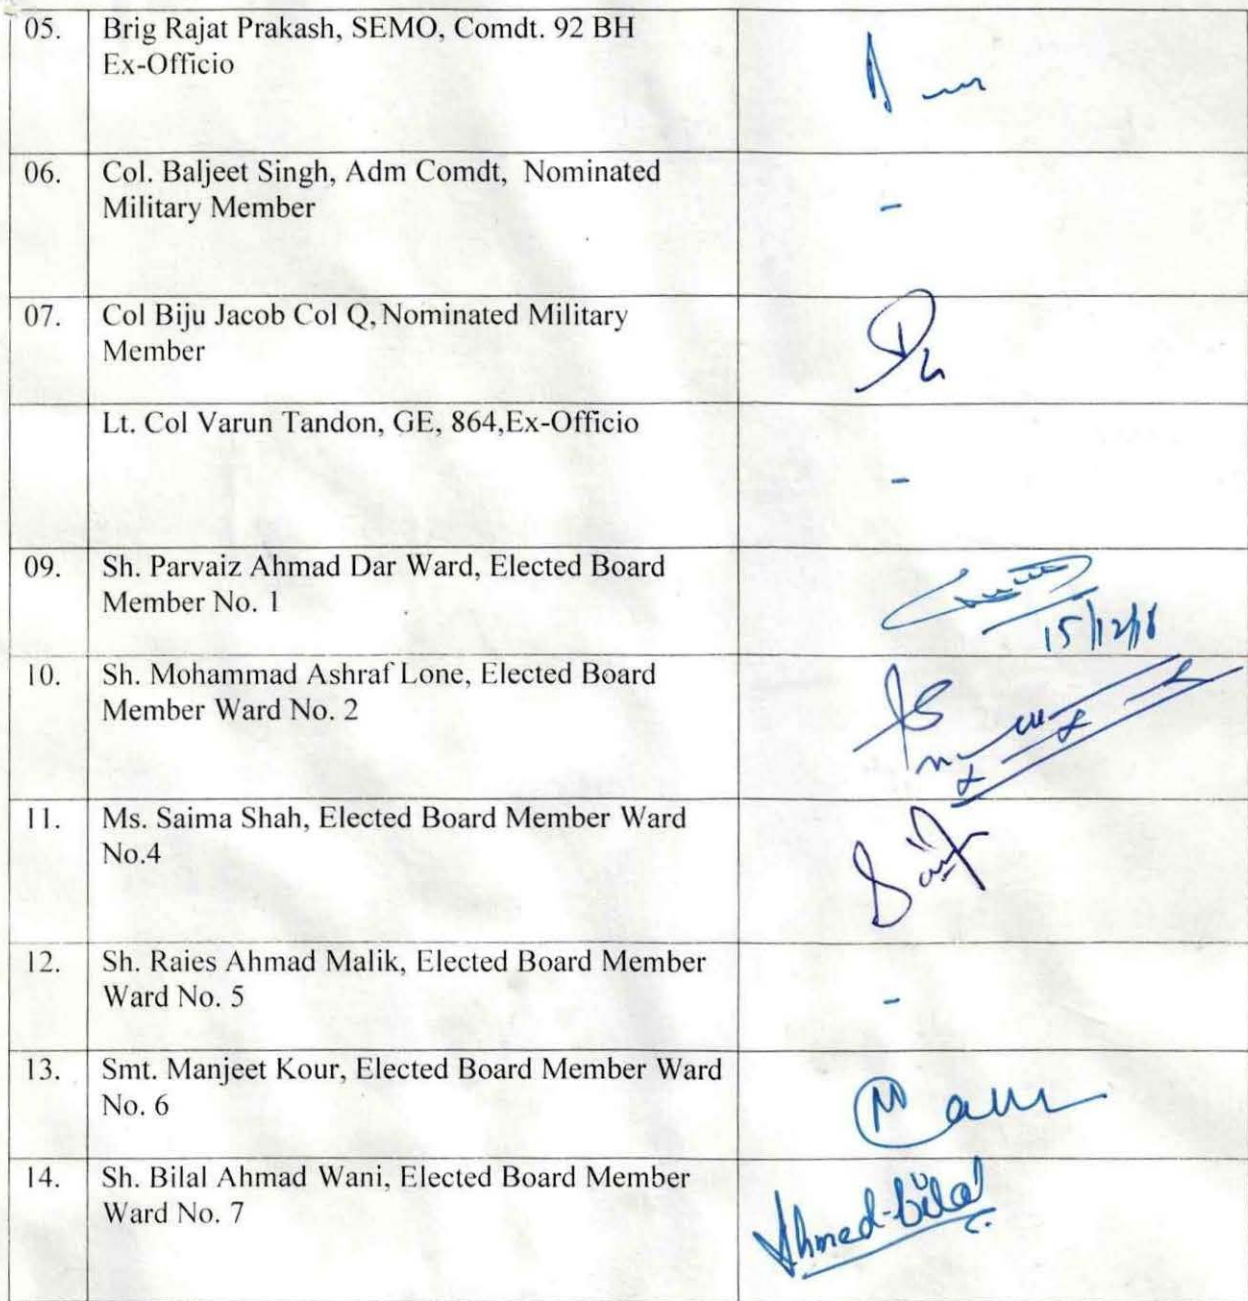 05. Brig Rajat Prakash, SEMO, Comdt. 92 BH
Ex-Officio
06. Col. Baljeet Singh, Adm Comdt, Nominated
Military Member
-
07. Col Biju Jacob Col Q, Nominated Military
Member
Lt. Col Varun Tandon, GE, 864,Ex-Officio
-
09. Sh. Parvaiz Ahmad Dar Ward, Elected Board
Member No. 1
15/12/18
10. Sh. Mohammad Ashraf Lone, Elected Board
Member Ward No. 2
11. Ms. Saima Shah, Elected Board Member Ward
No.4
12. Sh. Raies Ahmad Malik, Elected Board Member
Ward No. 5
-
13. Smt. Manjeet Kour, Elected Board Member Ward
No. 6
14. Sh. Bilal Ahmad Wani, Elected Board Member
Ward No. 7
Ahmed-bilal